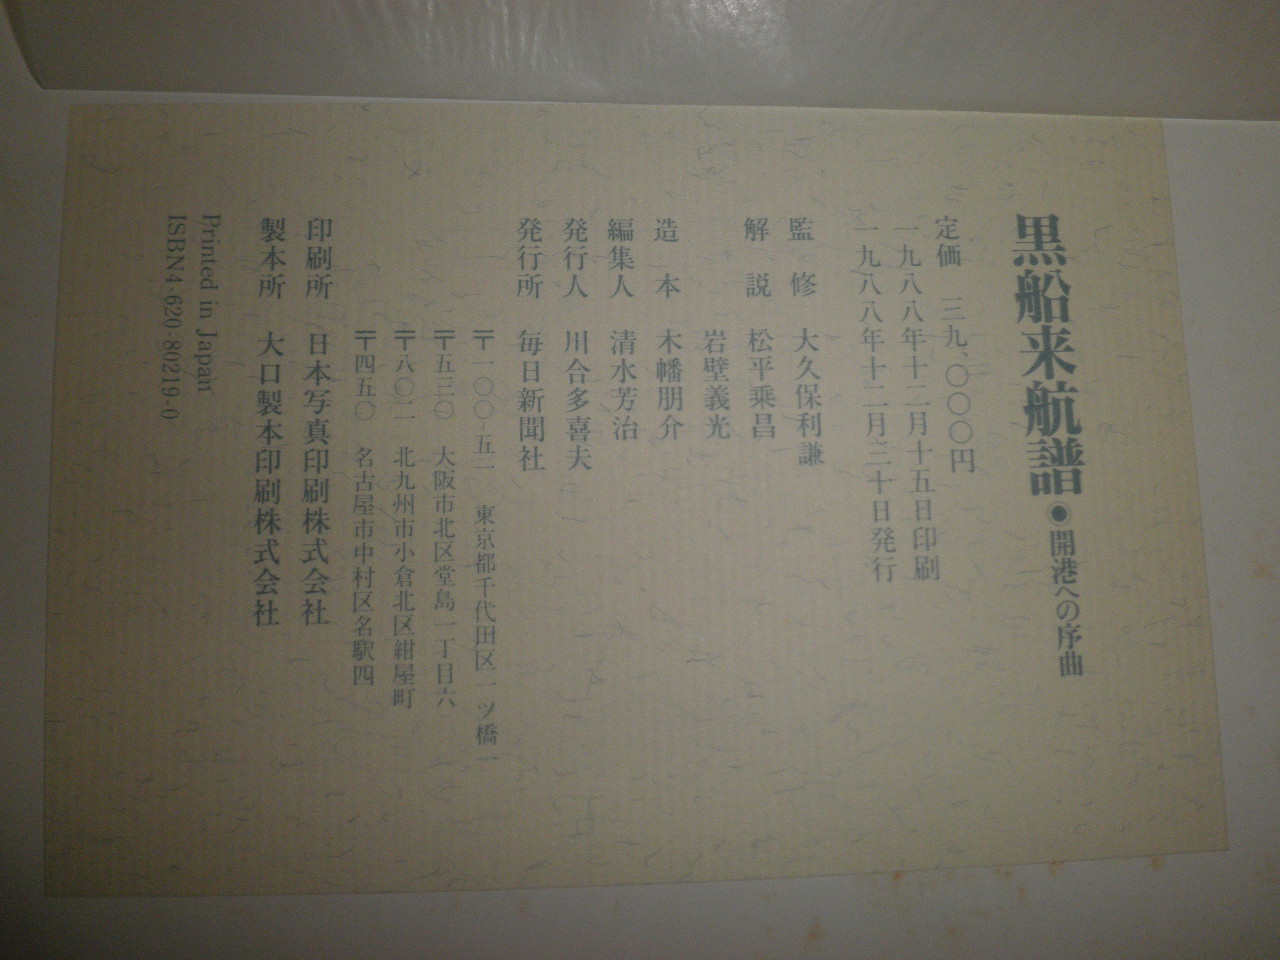 黒船来航譜◉開港への序曲
定価　三九、〇〇〇円
一九八八年十二月十五日印刷
一九八八年十二月三十日発行
監　修　大久保利謙
解　説　松平乗昌
岩壁義光
造　本　木幡朋介
編集人　清水芳治
発行人　川合多喜夫
発行所　毎日新聞社
〒一〇〇-五一　東京都千代田区一ツ橋一
〒五三〇　大阪市北区堂島一丁目六
〒八〇二　北九州市小倉北区紺屋町
〒四五〇　名古屋市中村区名駅四
印刷所　日本写真印刷株式会社
製本所　大口製本印刷株式会社
Printed in Japan
ISBN4-620-80219-0